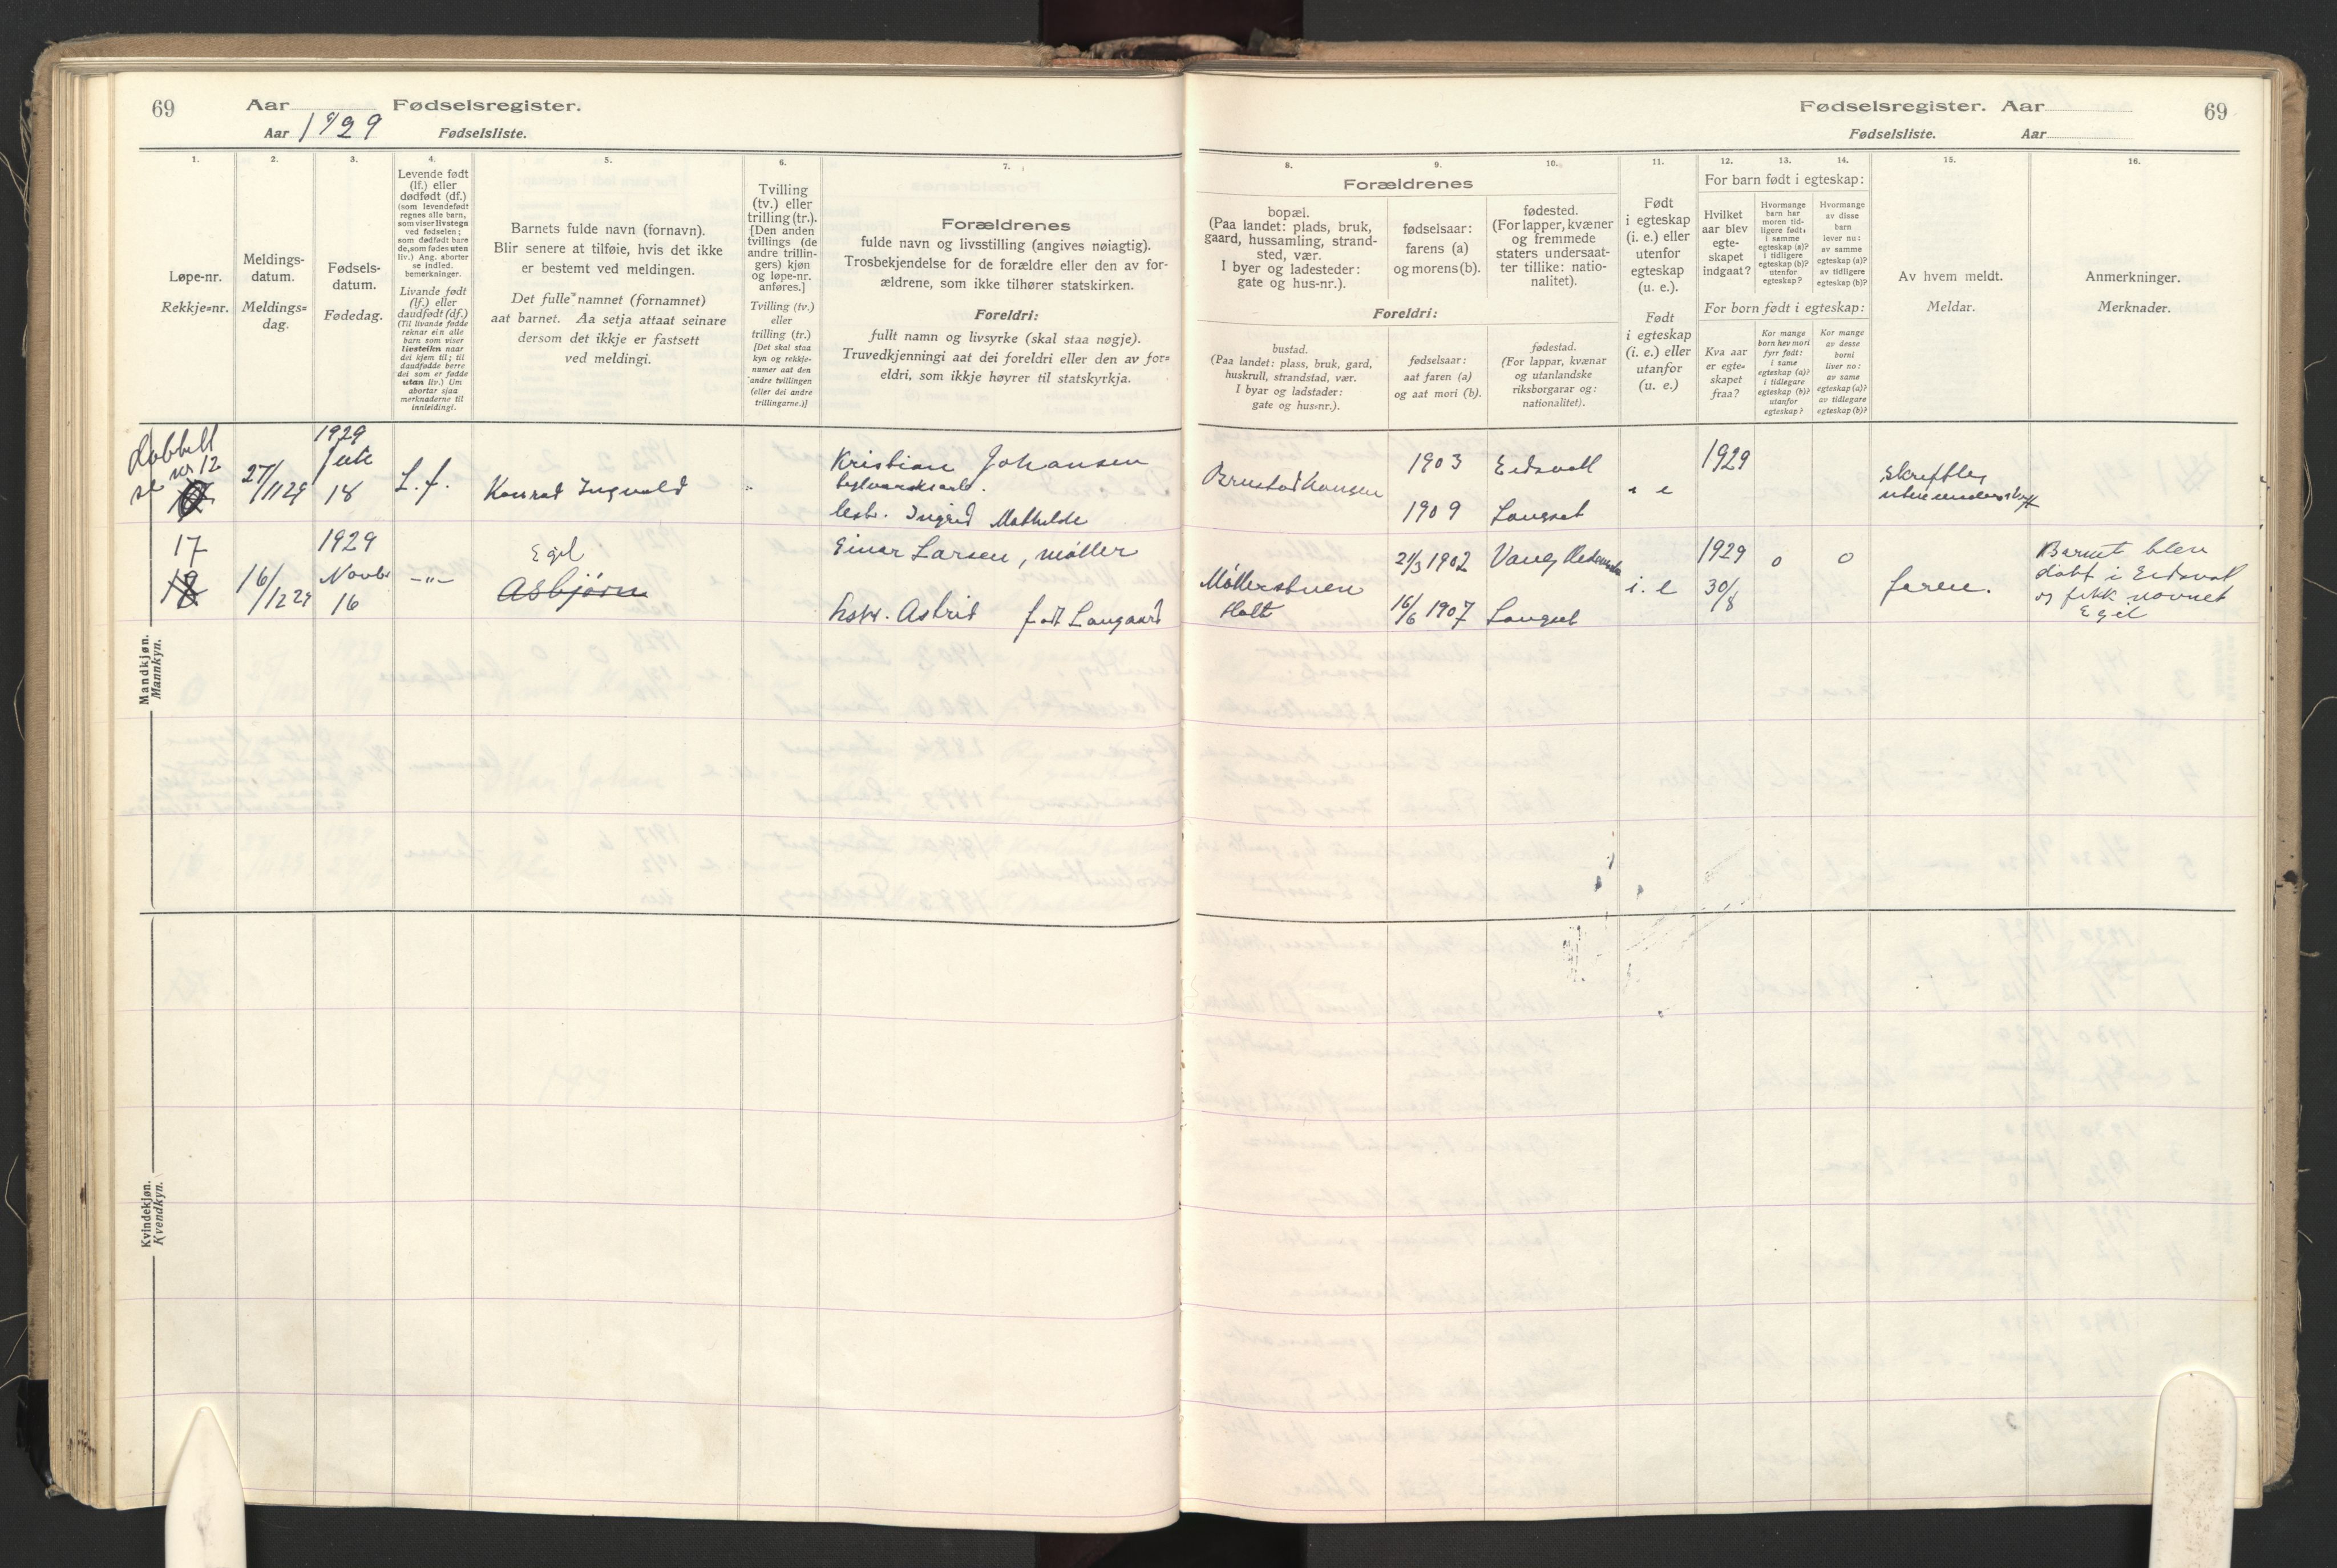 69 Aar Fødselsregister.
Aar 1929 Fødselsliste.
Fødselsregister. Aar 69
Fødselsliste. Aar
1.
Løpe-nr.
Rekkje-nr.
2.
Meldings-
datum.
Meldings-
dag.
3.
Fødsels-
datum.
Fødedag.
4.
Levende født
(lf.) eller
dødfødt (df.)
(som levendefødt
regnes alle barn,
som viser livstegn
ved fødselen;
som dødfødt bare
de, som fødes uten
liv.) Ang. aborter
se indled.
bemerkninger.
Livande født
(lf.) eller
daudfødt (df.)
(Til livande fødde
reknar ein alle
barn som viser
livsteikn naar
dei kjem til; til
daudfødde berre
dei som er fødde
utan liv.) Um
abortar sjaa
merknaderne til
innleidingi.
5.
Barnets fulde navn (fornavn).
Blir senere at tilføie, hvis det ikke
er bestemt ved meldingen.
Det fulle namnet (fornamnet)
aat barnet. Aa setja attaat seinare
dersom det ikkje er fastsett
ved meldingi.
6.
Tvilling
(tv.) eller
trilling (tr.).
[Den anden
tvillings (de
andre trillin-
gers) kjøn
og løpe-nr.
anføres.]
Tvilling (tv.)
eller
trilling (tr.)
[Det skal staa
kyn og rekkje-
numer aat den
andre tvillingen
(eller dei andre
trillingarne.)]
7.
Forældrenes
fulde navn og livsstilling (angives nøiagtig).
Trosbekjendelse for de forældre eller den av for-
ældrene, som ikke tilhører statskirken.
Foreldri:
fullt namn og livsyrke (skal staa nøgje).
Truvedkjenningi aat dei foreldri eller den av for-
eldri, som ikkje høyrer til statskyrkja.
Forældrenes
8.
bopæl.
(Paa landet: plads, bruk,
gaard, hussamling, strand-
sted, vær.
I byer og ladesteder:
gate og hus-nr.).
9.
fødselsaar:
farens (a)
og morens (b).
10.
fødested.
(For lapper, kvæner
og fremmede
staters undersaat-
ter tillike: natio-
nalitet).
Foreldri:
bustad.
(Paa landet: plass, bruk, gard,
huskrull, strandstad, vær.
I byar og ladstader:
gate og hus-nr.).
fødselsaar:
aat faren (a)
og aat mori (b).
fødestad.
(For lappar, kvænar
og utanlandske
riksborgarar og:
nationalitet).
11.
Født
i egteskap
(i. e.) eller
utenfor
egteskap
(u. e.).
Født
i egteskap
(i. e.) eller
utanfor
(u. e.)
For barn født i egteskap:
12.
Hvilket
aar blev
egte-
skapet
indgaat?
13.
Hvormange
barn har
moren tid-
ligere født:
i samme
egteskap (a)?
i tidligere
egteskap (b)?
utenfor
egteskap?
14.
Hvormange
av disse
barn
lever nu:
av samme
egteskap (a)?
av tidligere
egteskap (b)?
For born født i egteskap:
Kva aar
er egte-
skapet
fraa?
Kor mange
born hev mori
fyrr født:
i same
egteskap (a)?
i tidlegare
egteskap (b)?
utanfor
egteskap?
Kor mange
av desse
borni
liver no:
av same
egteskap (a)?
av tidlegare
egteskap (b)?
15.
Av hvem meldt.
Meldar.
16.
Anmerkninger.
Merknader.
Mandkjøn.
Mannkyn.
Dobbelt
se nr 12
27/11 29
1929
18
L. f.
Konrad Ingvald
Kristian Johansen
Ingrid Mathilde
1903 Eidsvoll
1909 Langset
i e
1929
17
16/12 29
1929
Novbr
16
-"-
Egil
Asbjørn
Einar Larsen, møller
Astrid født Langaard
Møllerstuen
Holt
21/3 1902
16/6 1907 Langset
i. e
1929
30/8
0
0
faren.
Barnet blev
døbt i Eidsvol
og fikk navnet
Egil
Kvindekjøn.
Kvendkyn.